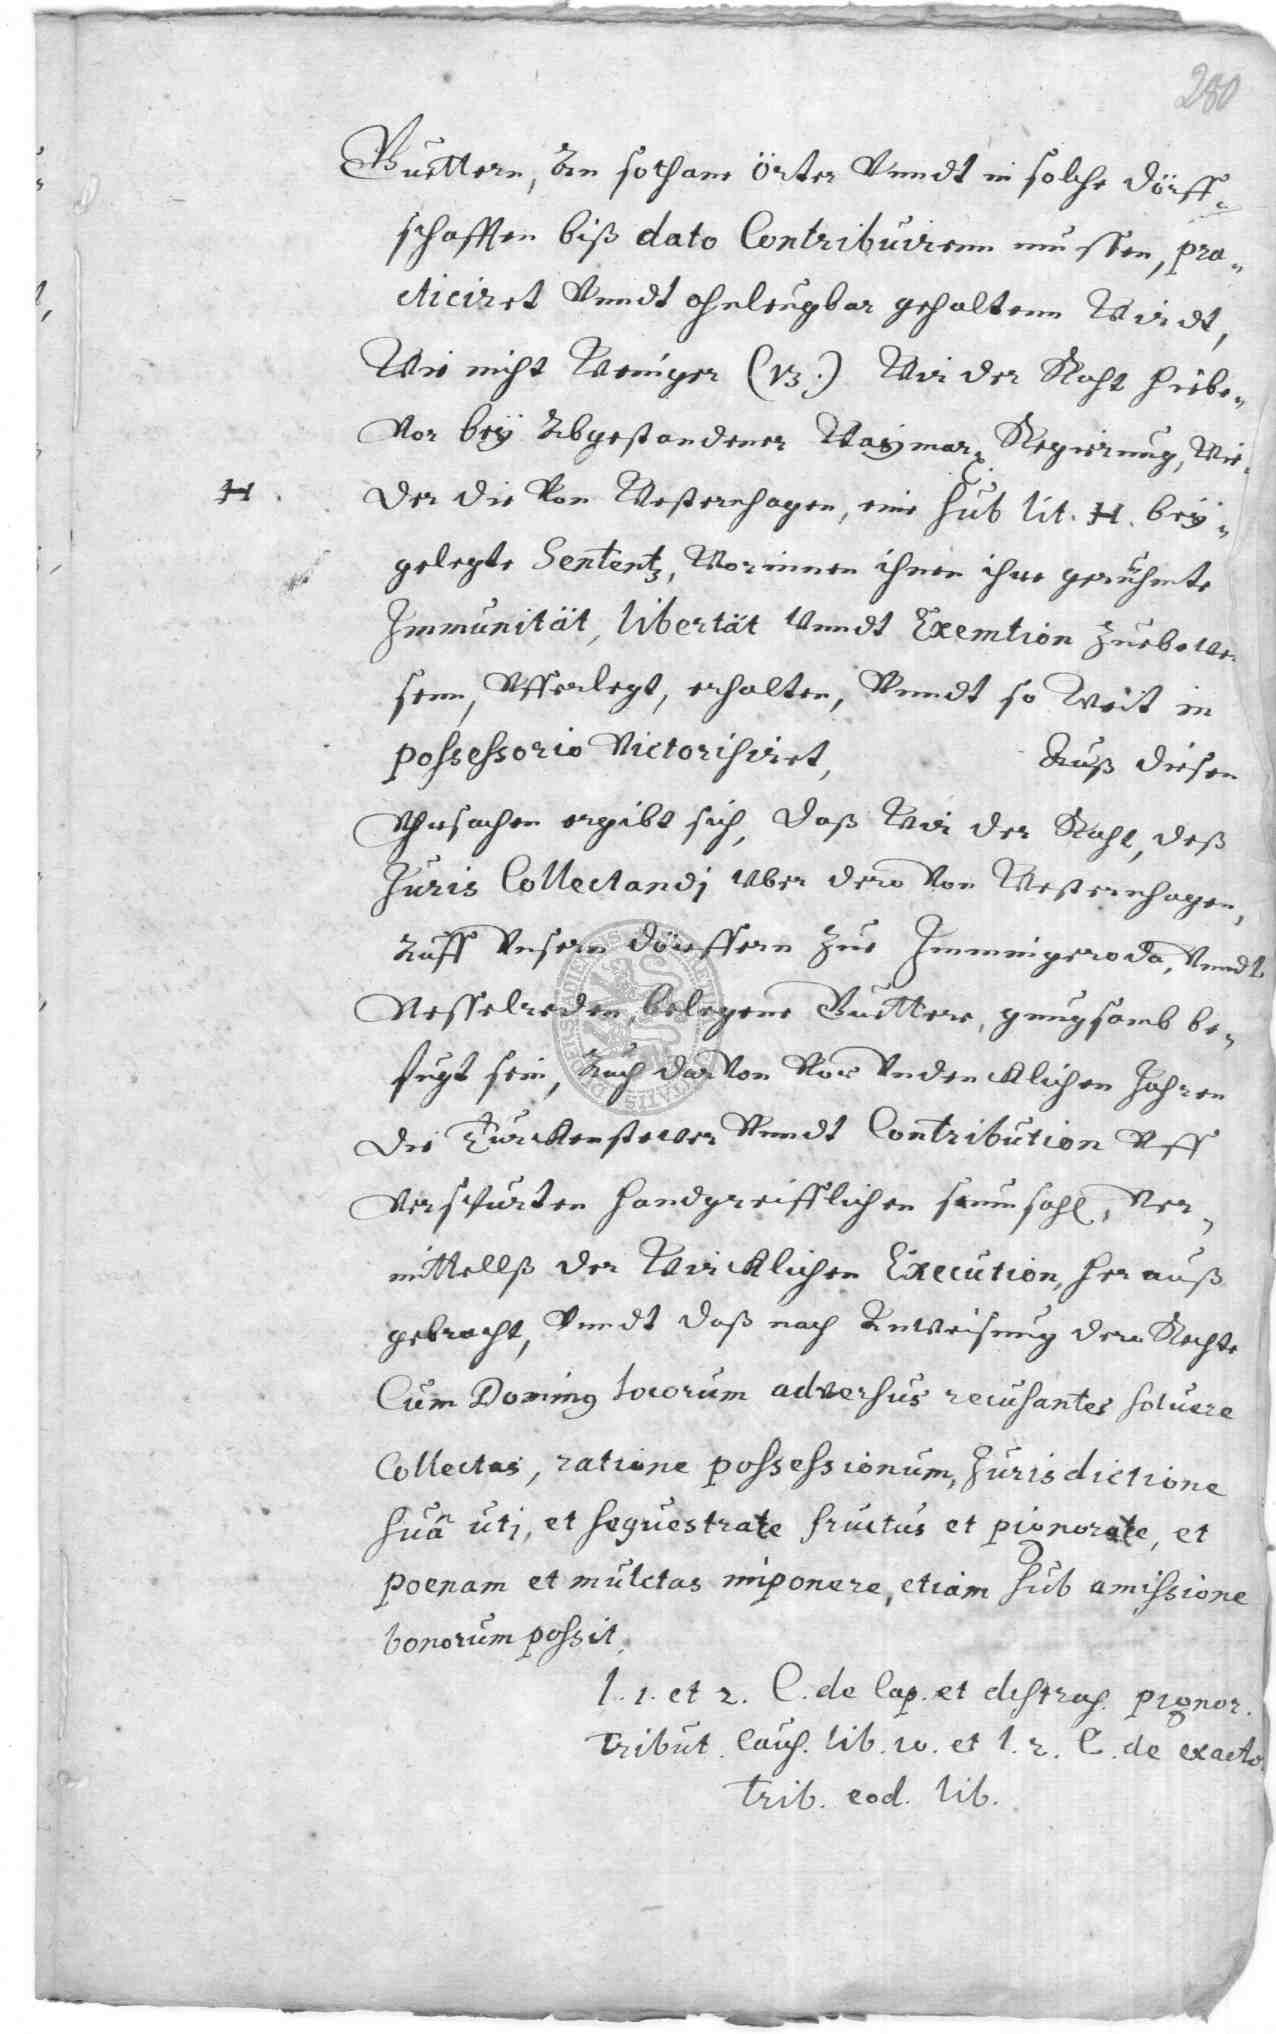 280
Guettern, An sothane Örter Vnndt in solche dörff-
schafften biß dato Contribuirenn mussen, pra-
cticiret Vnndt ohnleugbar gehaltenn Wirdt,
Wie nicht Weniger (13.) Wir der Raht hiebe-
Vor beÿ Abgestandener Waÿmar. Regierung, Wie-
H. der die Von Westernhagen, eine sub lit. H. beÿ-
gelegte Sententz, Worinnen ihnen ihre gerühmte
Immunität, libertät Vnndt Exemtion Zuebewei-
senn, Vfferlegt, erhalten, Vnndt so Weit in
possessorio Victorisiret, Auß diesen
Vhrsachen ergibt sich, daß Wir der Raht, deß
Juris Collectandj Vber dero Von Westernhagen,
Auff Vnsern dörffern zue Immingeroda, Vnndt
Nesselreden, belegene Guettere, gnugsamb be-
fugt sein, Auch darVon Vor Vndencklichen Jahren
die Türckensteuer Vnndt Contribution Vff
Verspürten handgreifflichen saumsahl, Ver-
mittellß der Wircklichen Execution, herauß
gebracht, Vnndt daß nach Anweisung dero Rechte
Cum Dominus locorum adversus recusantes solvere
Collectas, ratione possessionum, Jurisdictione
suâ utj, et sequestrare fructus et pignorare, et
poenam et mulctas imponere, etiam sub amissione
bonorum possit,
l. 1. et 2. C. de Cap. et distrah. pignor.
tribut. caus. lib. 10. et l. 2. C. de exacto.
trib. eod. lib.